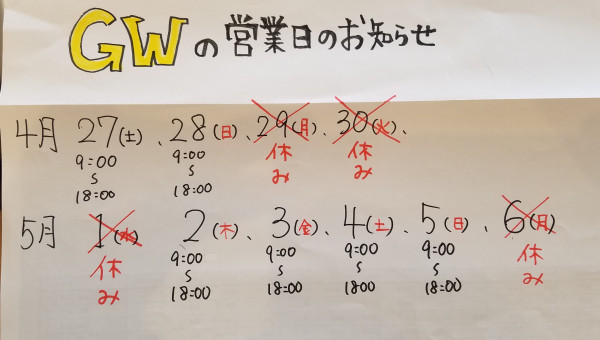 GWの営業日のお知らせ
4月 27(土)、28(日)、29(月)、30(火)、
9:00 9:00 休 休
S S み み
18:00 18:00
5月 1(水) 2(木)、3(金)、4(土)、5(日)、6(月)
休 9:00 9:00 9:00 9:00 休
み S S S S み
18:00 18:00 18:00 18:00